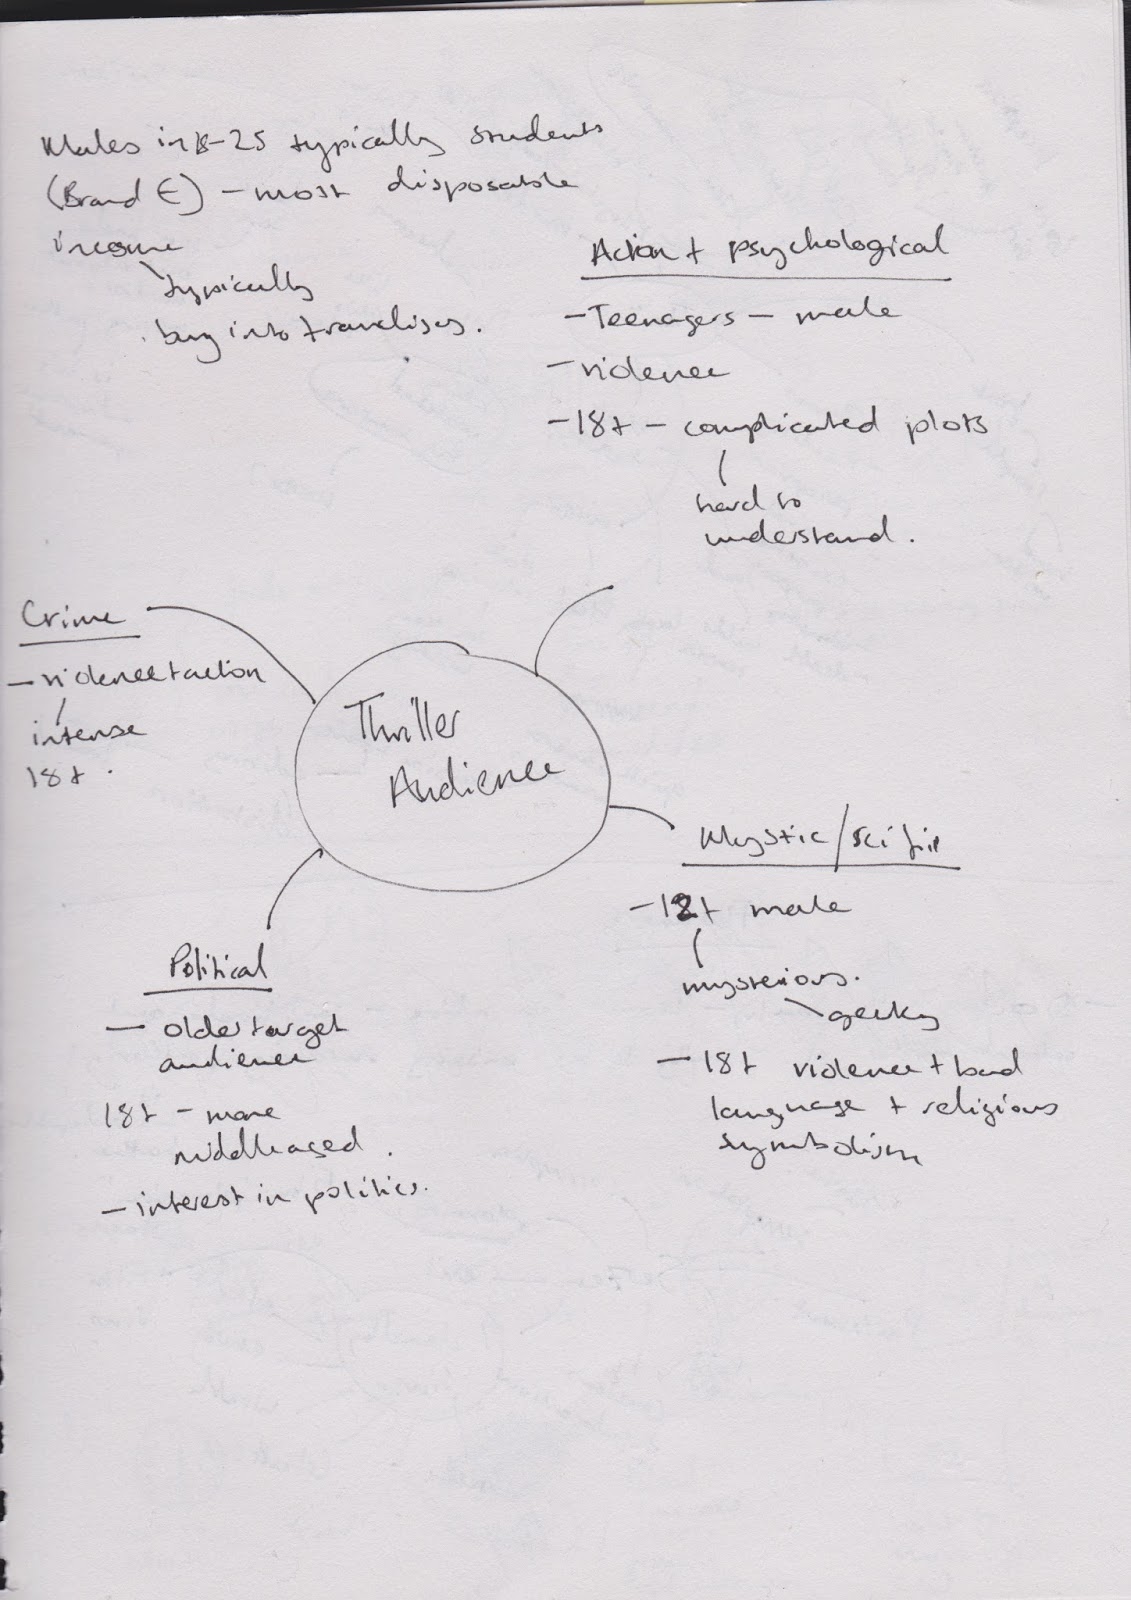 Males in 18-25 typically students
(Brand E) - most disposable
income
typically
buy into franchises.
Action + psychological
- Teenagers - male
- violence
- 18+ - complicated plots
hard to
understand.
Crime
- violence + action
intense
18+.
Thriller
Audience
Mystic/sci fi
- 12+ male
mysterious.
geeky
- 18+ violence + bad
language + religious
symbolism
Political
- older target
audience
18+ - more
middle aged.
- interest in politics.